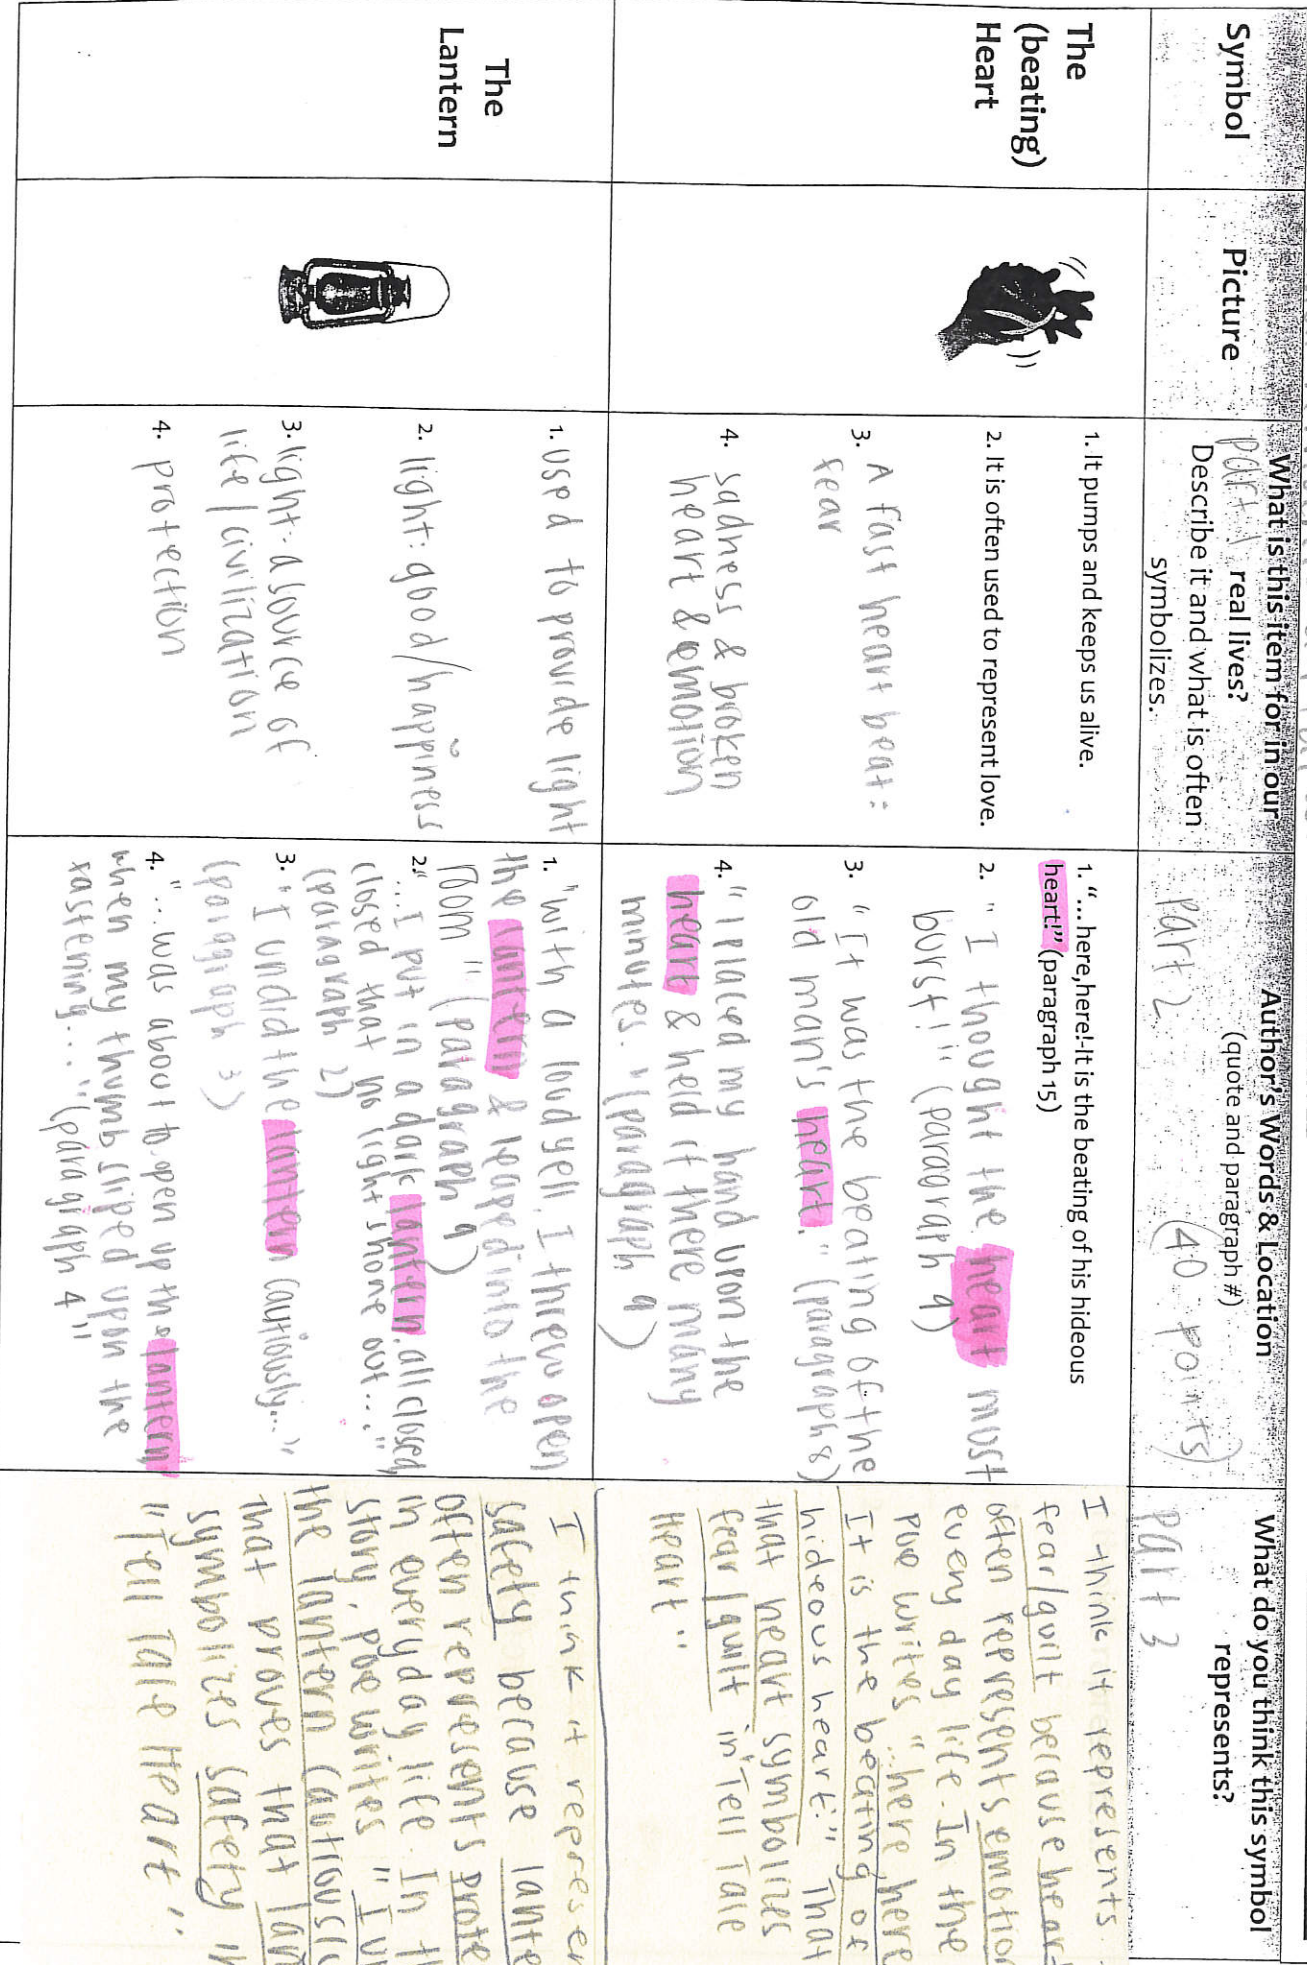 Symbol
Picture
What is this item for in our
part 1 real lives?
Describe it and what is often
symbolizes.
Author's Words & Location
(quote and paragraph #)
part 2 (40 points)
What do you think this symbol
represents?
part 3
The
(beating)
Heart
1. It pumps and keeps us alive.
2. It is often used to represent love.
3. A fast heart beat:
fear
4. sadness & broken
heart & emotion
1. "...here, here!-it is the beating of his hideous
heart!" (paragraph 15)
2. "I thought the heart must
burst!" (paragraph 9)
3. "It was the beating of the
old man's heart." (paragraph 8)
4. "I placed my hand upon the
heart & held it there many
minutes." (paragraph 9)
I think it represents
fear/guilt because heart
often represents emotion
every day life. In the
poe writes "...here, here
It is the beating of
hideous heart." That
that heart symbolizes
fear/guilt in "Tell Tale
Heart"
The
Lantern
1. used to provide light
2. light: good/happiness
3. light: a source of
life/civilization
4. protection
1. "with a loud yell, I threw open
the lantern & leaped into the
room" (paragraph 9)
2. "...I put in a dark lantern, all closed,
closed that no light shone out..."
(paragraph 2)
3. "I undid the lantern cautiously..."
(paragraph 3)
4. "...was about to open up the lantern
when my thumb sliped upon the
fastening..." (paragraph 4"
I think it represen
safety because lante
often represents prote
in everyday life. In th
story, poe writes "I un
the lantern cautiously
that proves that lan
symbolizes safety in
"Tell Tale Heart"